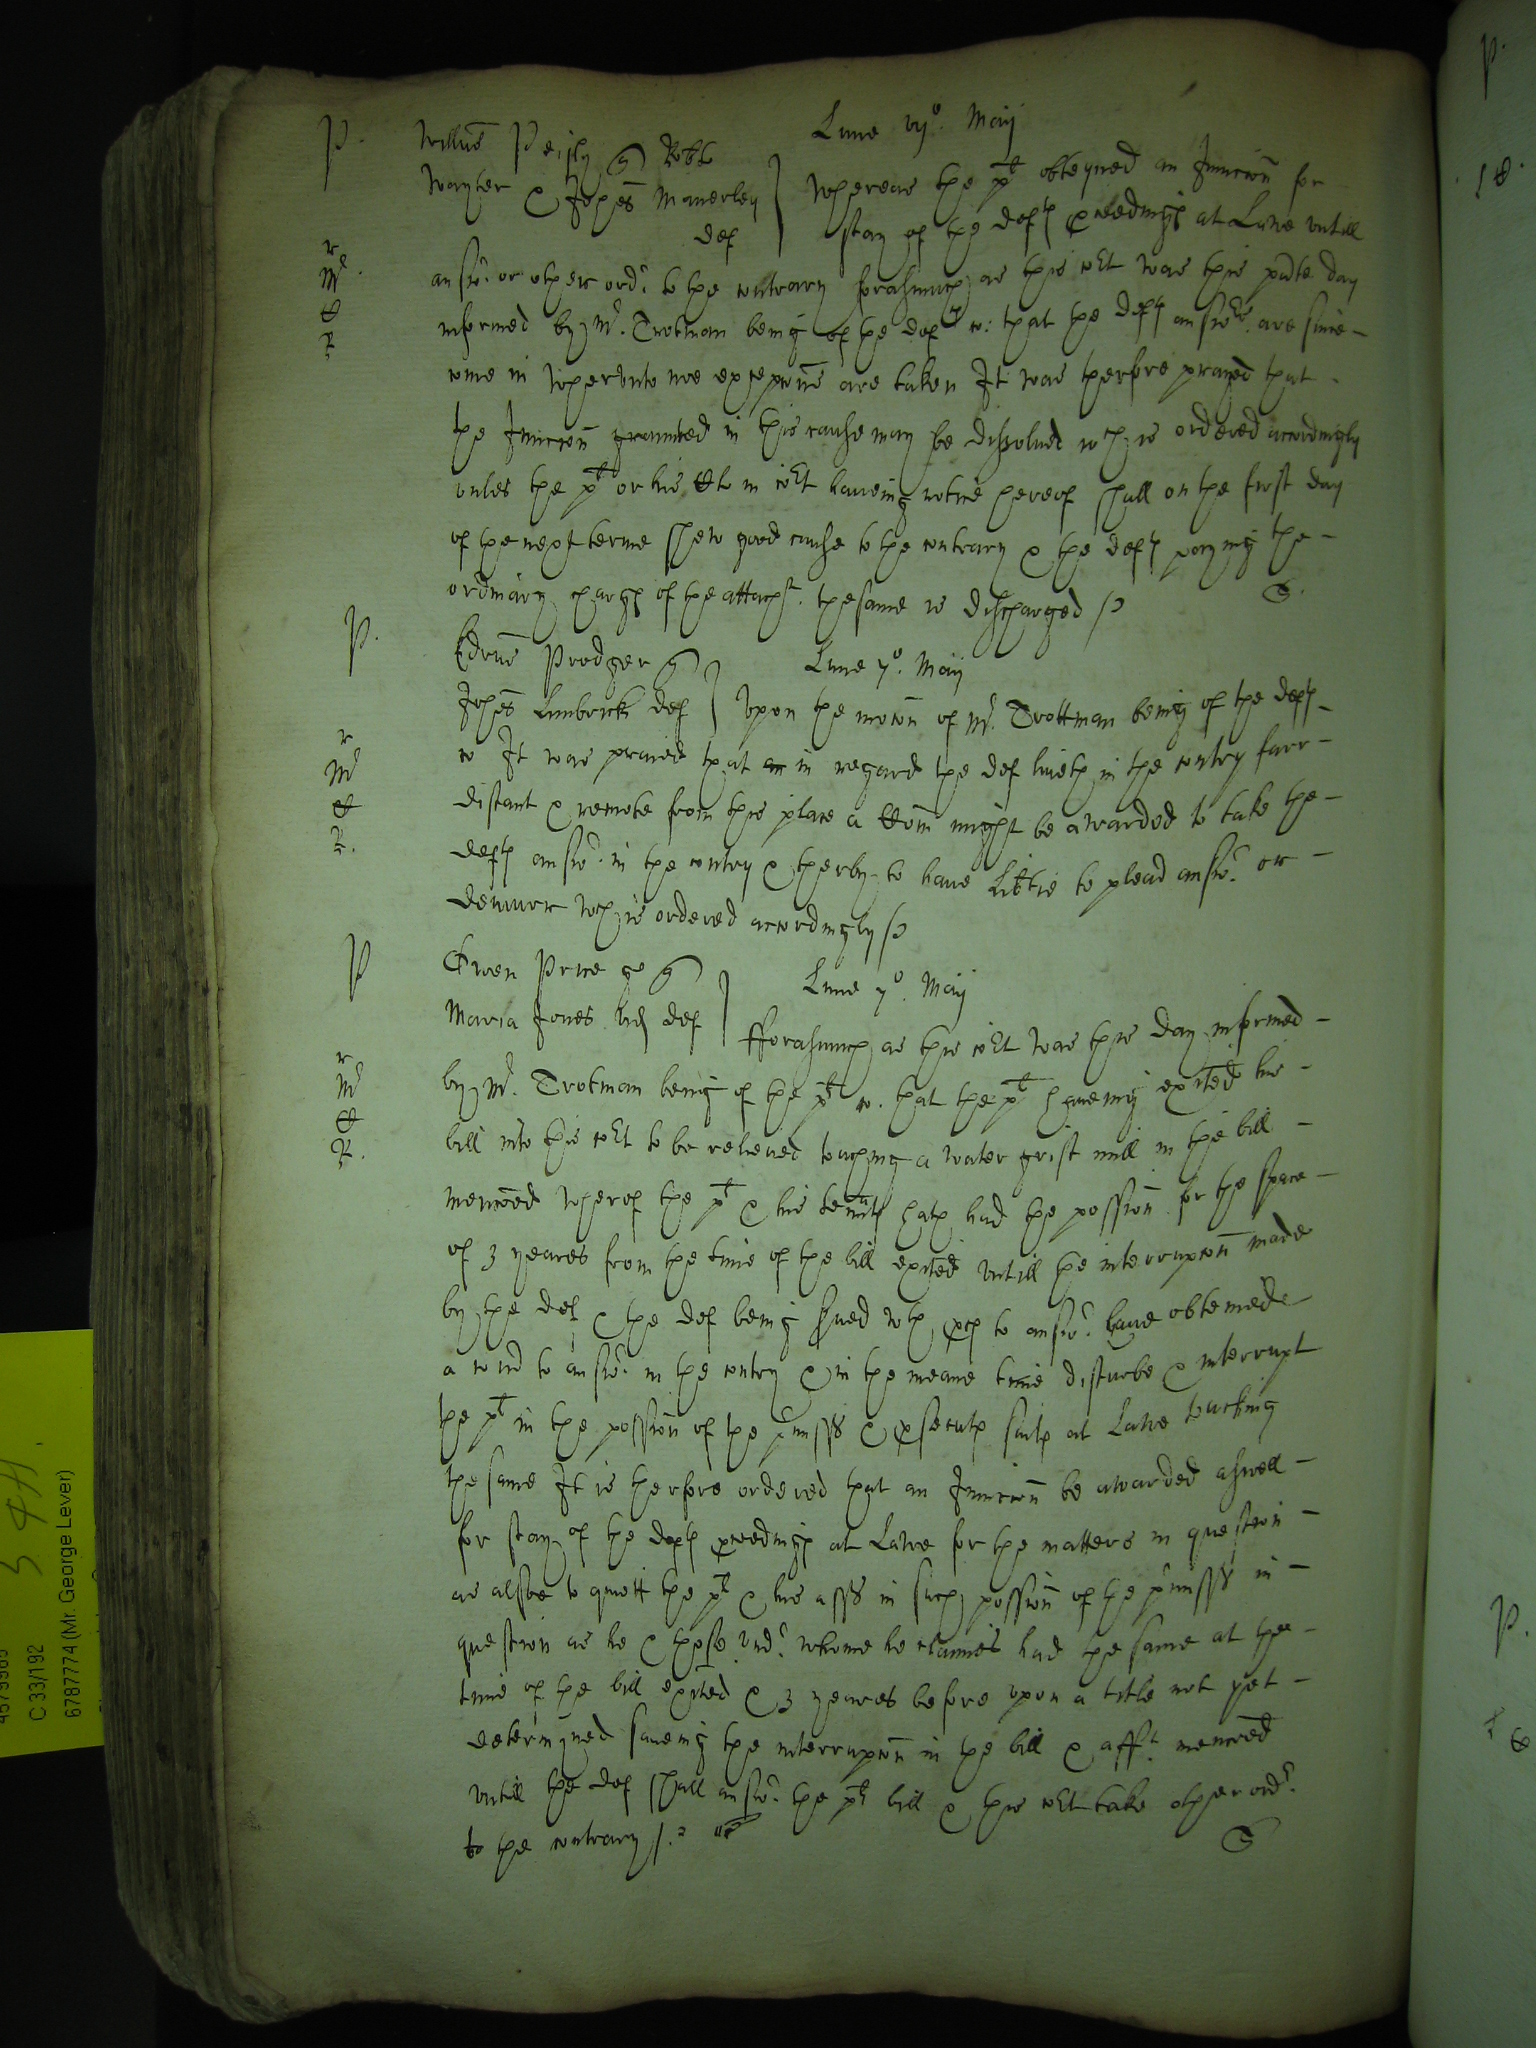 P. Willus Peisly q Robt Lune vijo. Maij
Wayter & Johes Maverley def Whereas the plt obteyned an Iniuncon for
stay of the deftes proceedinges at Lawe vntill
answr. or other ordr. to the contrary forasmuch as this Cort was this pnte day
informed by Mr. Trotman being of the deftes co: that the deftes answres. are since
come in wherevnto noe excepcons are taken It was therfore prayed that
the Iniuncon graunted in this cause may be dissolued wch is ordered accordingly
vnles the plt or his Att in Cort haveing notice hereof shall on the first day
of the next terme shew good cause to the contrary & the deftes paying the
ordinary charges of the attachmt. the same is discharged
P. Edrus Prodger q Lune 7o. Maij
Johes Limbrick def Vpon the mocon of Mr. Trottman being of the deftes
co It was praied that in regard the def liveth in the contry farr
distant & remote from this place a Com might be awarded to take the
deftes answr. in the contry & therby to have Libtie to plead answr. or
demurr wch is ordered accordingly
P Owen Price ge q Lune 7o. Maij
Maria Jones vid def fforasmuch as this Cort was this day informed
by Mr. Trotman being of the pltes co. that the plt haveing exited his
bill into this Cort to be releived touching a water grist mill in the bill
mencoed wherof the plt & his tennts hath had the possion for the space
of 3 yeares from the time of the bill exited vntill the interrupcon made
by the def & the def being serued wth proces to answr. have obteined
a Com to answr. in the contry & in the meane time disturbe & interrupt
the plt in the possion of the prmisses & prsecuteth suite at Lawe touching
the same It is therfore ordered that an Iniuncon be awarded aswell
for stay of the deftes proceedinges at Lawe for the matters in question
as alsoe to quiett the plt & his asses in such possion of the prmisses in
question as he & those vndr. whome he claimes had the same at the
time of the bill exited & 3 yeares before vpon a title not yet
determyned saueing the interrupcon in the bill & afft. mencoed
vntill the def shall answr. the pltes bill & this Cort take other ordr.
to the contrary
C 33/192
6787774 (Mr. George Lever)